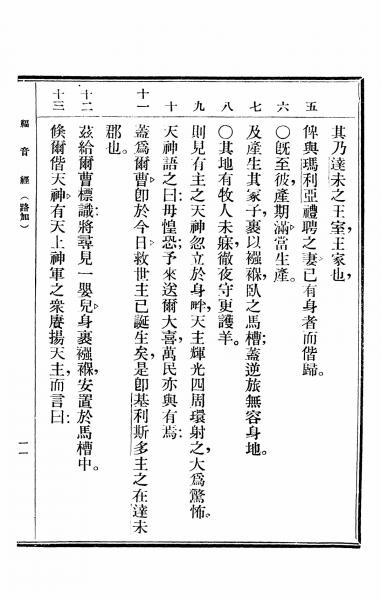 其乃達未之王室王家也
五 俾與瑪利亞禮聘之妻已有身者而偕歸。
六 〇旣至彼產期滿當生產。
七 及產生其冢子裹以襁褓臥之馬槽;蓋逆旅無容身地。
八 〇其地有牧人未寐徹夜守更護羊。
九 則見有主之天神忽立於身畔天主輝光四周環射之大爲驚怖。
十 天神語之曰毋惶恐;予來送爾大喜萬民亦與有焉;
十一 蓋爲爾曹卽於今日救世主已誕生矣是卽基利斯多主之在達未
郡也。
十二 茲給爾曹標識將尋見一嬰兒身裹襁褓安置於馬槽中。
十三 倏爾偕天神有天上神軍之衆賡揚天主而言曰:
福音經(路加)
一一